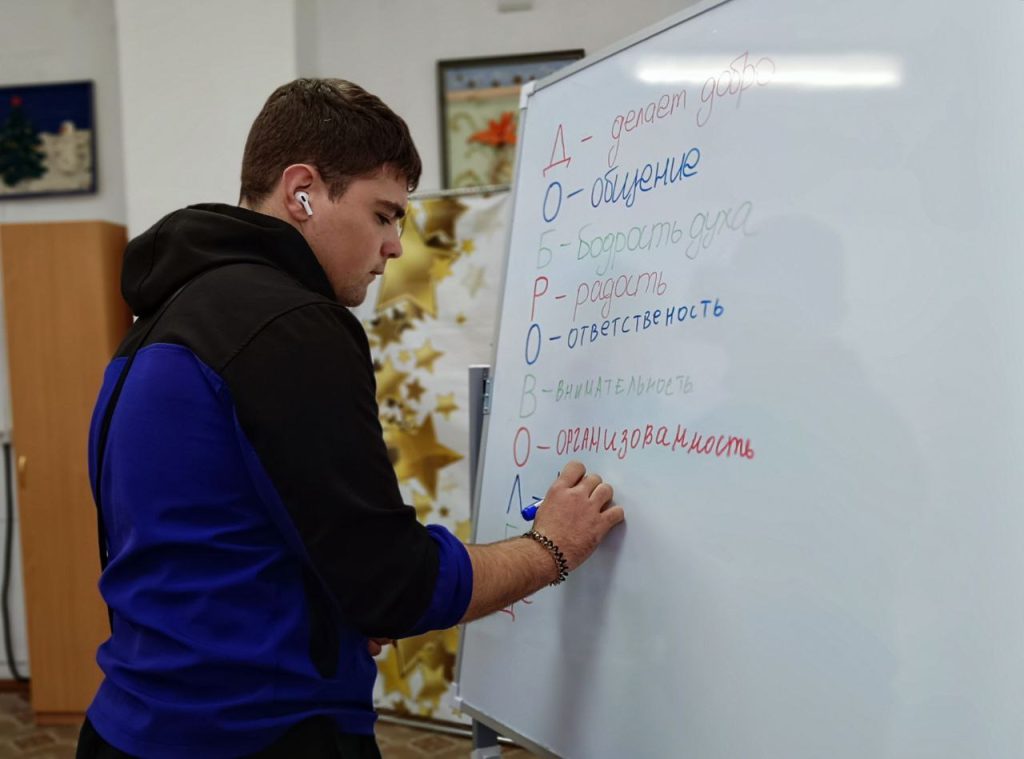 Д - делает добро
О - общение
Б - бодрость духа
Р - радость
О - ответственость
В - внимательность
О - организованность
Л -